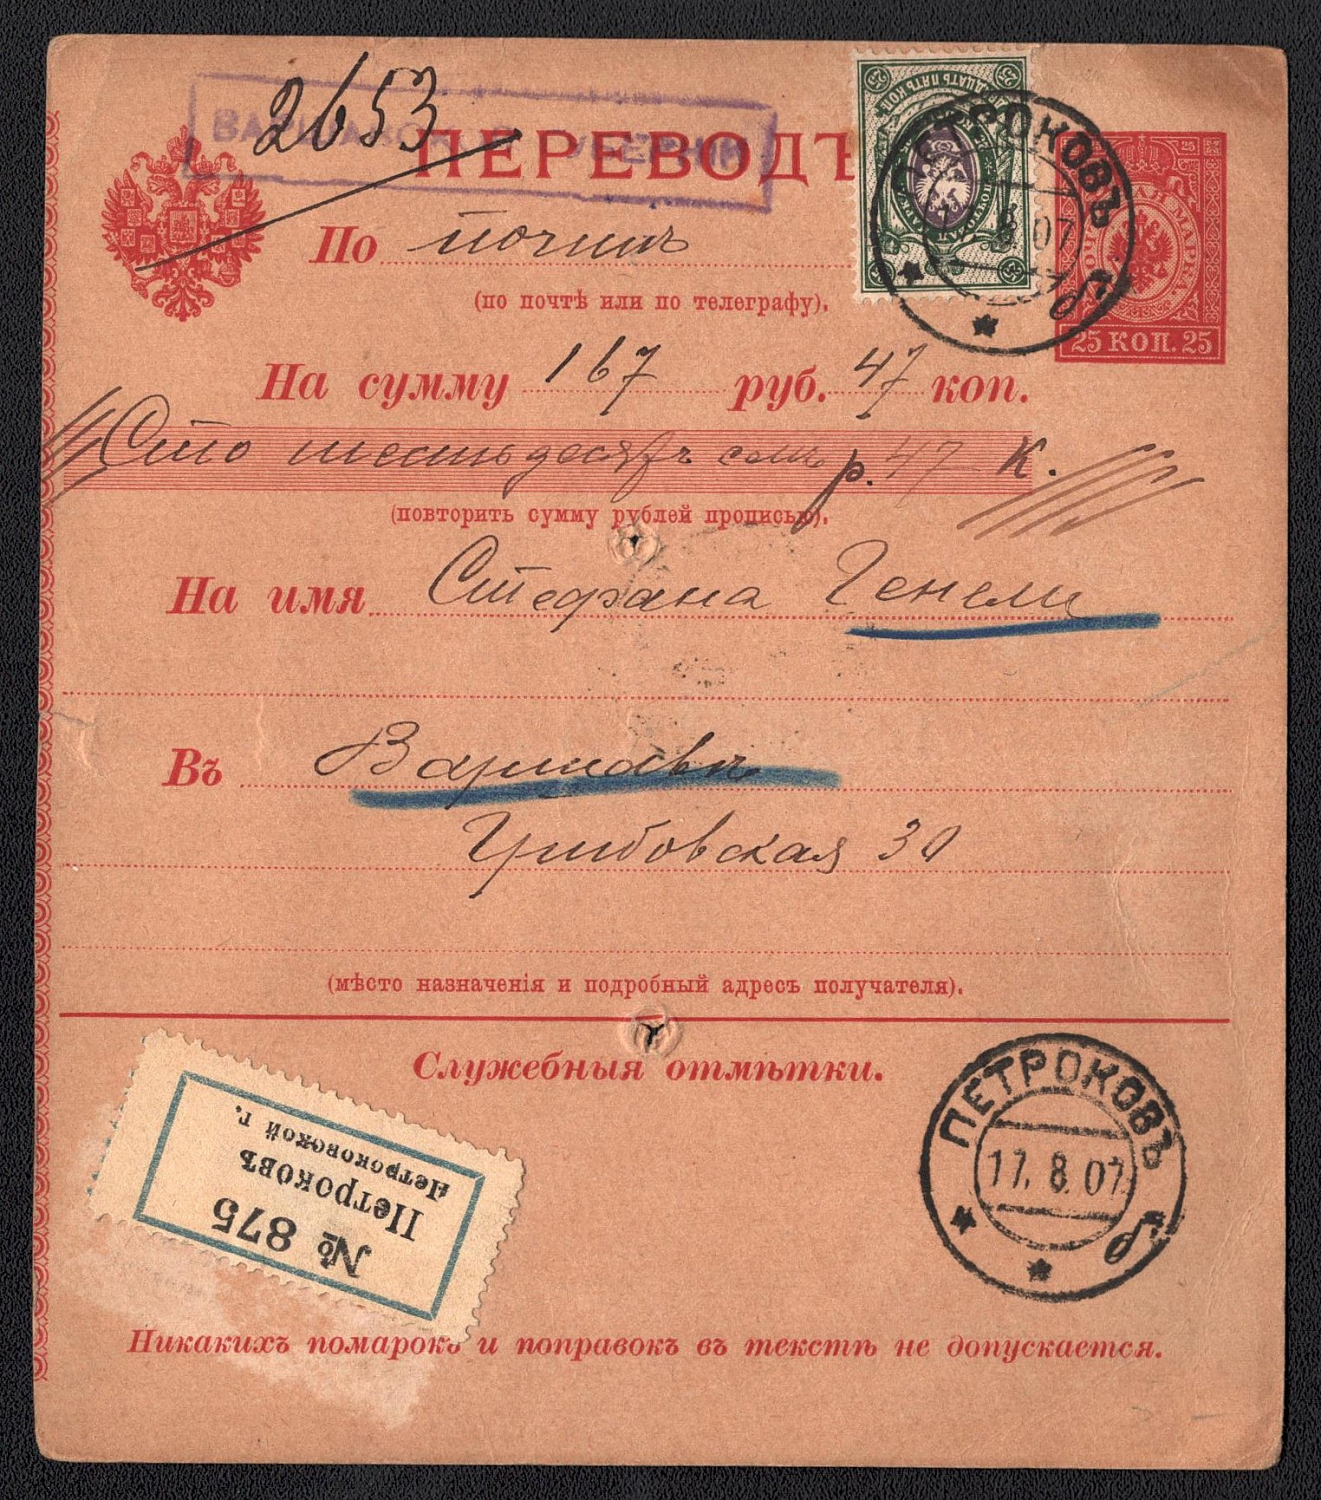 2653
ПЕРЕВОДЪ
По почтѣ
(по почтѣ или по телеграфу).
25 КОП. 25
На сумму 167 руб. 47 коп.
Сто шестьдесятъ семь р. 47 К.
(повторить сумму рублей прописью).
На имя Стефана Генели
Въ Варшавѣ
Грибовская 30
(мѣсто назначенія и подробный адресъ получателя).
Служебныя отмѣтки.
ПЕТРОКОВЪ
17. 8. 07
№ 875
Петроковъ
Петроковской г.
Никакихъ помарокъ и поправокъ въ текстѣ не допускается.